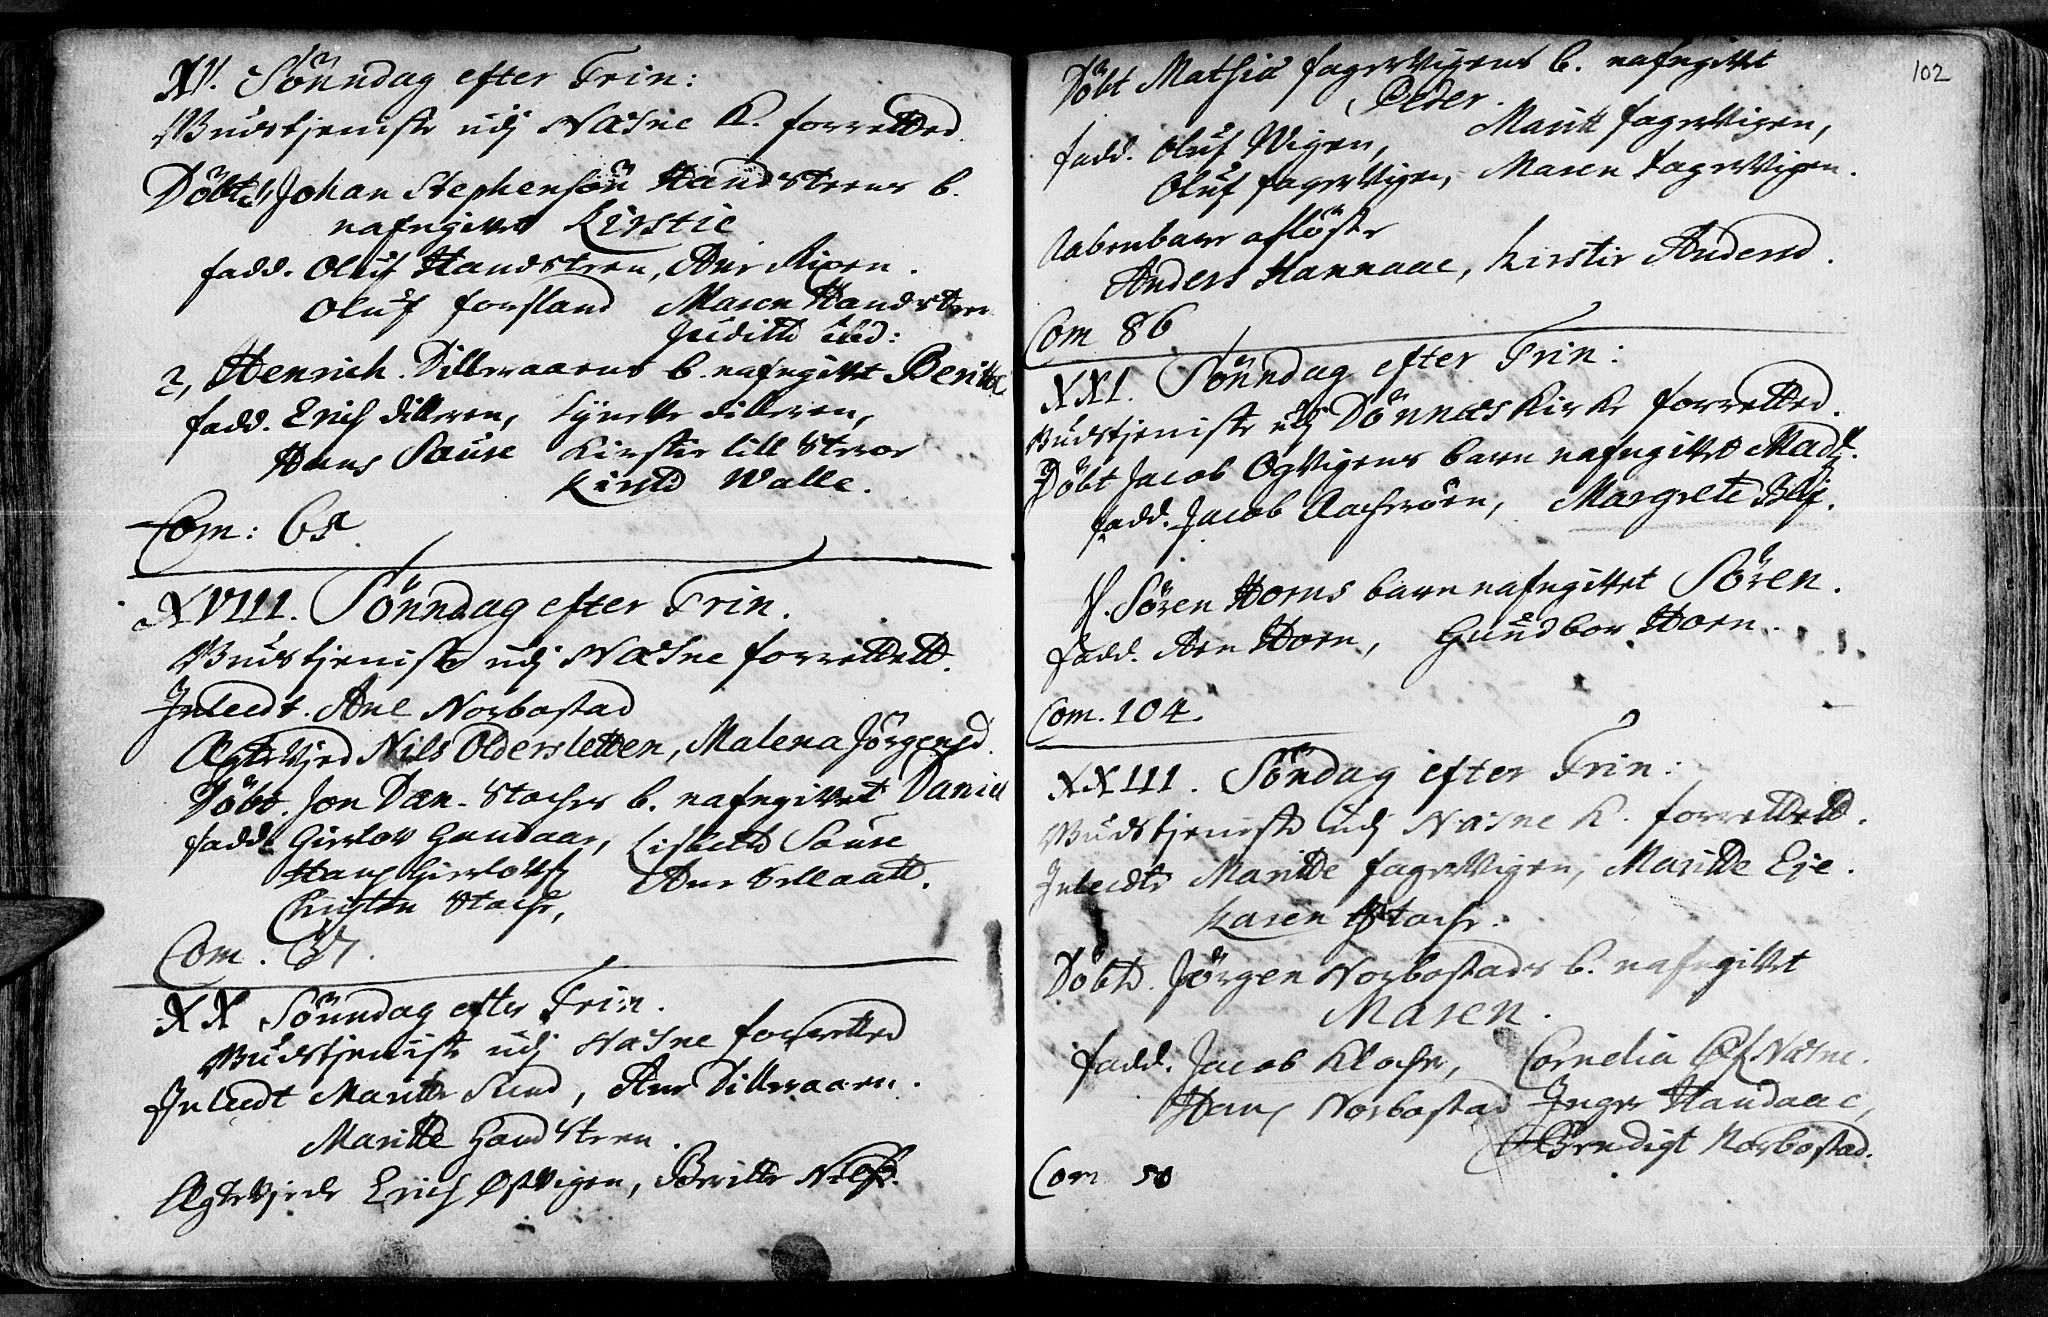 XV. Sönndag efter Trin:
Gudstjeniste udj Næsne K. forretted.
Döbt 1, Johan Stephensön Handsteens b.
nafngivet Kirstie
fadd. Oluf Handsteen, Ane Ripen.
Oluf Forsland Maren Handsteen
Judith ibid:
2, Henrich Dilleraaens b. nafngivet Beritte
fadd. Erich Dilleren, Synette Dilleren,
Hans Saure Kirstie lill Steror
Kirsti Walle.
Com: 65.
XVIII. Sönndag efter Trin.
Gudstjeniste udj Næsne forrettett.
Inleedt. Ane Norbostad
Ægtevjed Nils Oldersletten, Malena Jörgensd.
Döbt. Jon Dan-Stochs b. nafngivet Daniel
fadd. Gierlov Handaae, Lisbeth Saure
Hans Gierlovs
Christen Stoche,
Com. 37.
XX Sönndag efter Trin.
Gudstjeniste udj Næsne forretted
Inleedt Maritte Sund, Ane Dilleraaen.
Maritte Handsteen.
Ægtevjede Erich Østvigen, Beritte Nilsd.
102
Döbt Mathia Fagervigens b. nafngivet
Peder.
fadd. Oluf Vigen, Maritt Fagervigen,
Oluf Fagervigen, Maren Fagervigen.
Aabenbare aflöste
Anders Hannaae, Kirstie Andersd.
Com 86
XXI. Sönndag efter Trin:
Gudstjeniste udj Dönnæs Kirke forretted.
Döbt Jacob Ogvigens barn nafngivet Mads.
fadd. Jacob Aachervigen, Margrete Blij.
H. Sören Horns barn nafngivet Sören.
fadd. Ane Horn, Gundbor Horn.
Com. 104.
XXIII. Söndag efter Trin:
Gudstjeniste udj Næsne K. forrettett.
Inleedte Maritte Fagervigen, Maritte Eje.
Karen Stoche.
Döbt. Jörgen Norbostads b. nafngivet
Maren.
fadd. Jacob Kloche, Cornelia Næsne.
Hans Norbostad Inger Handaae,
Brendigt Norbostad.
Com 50